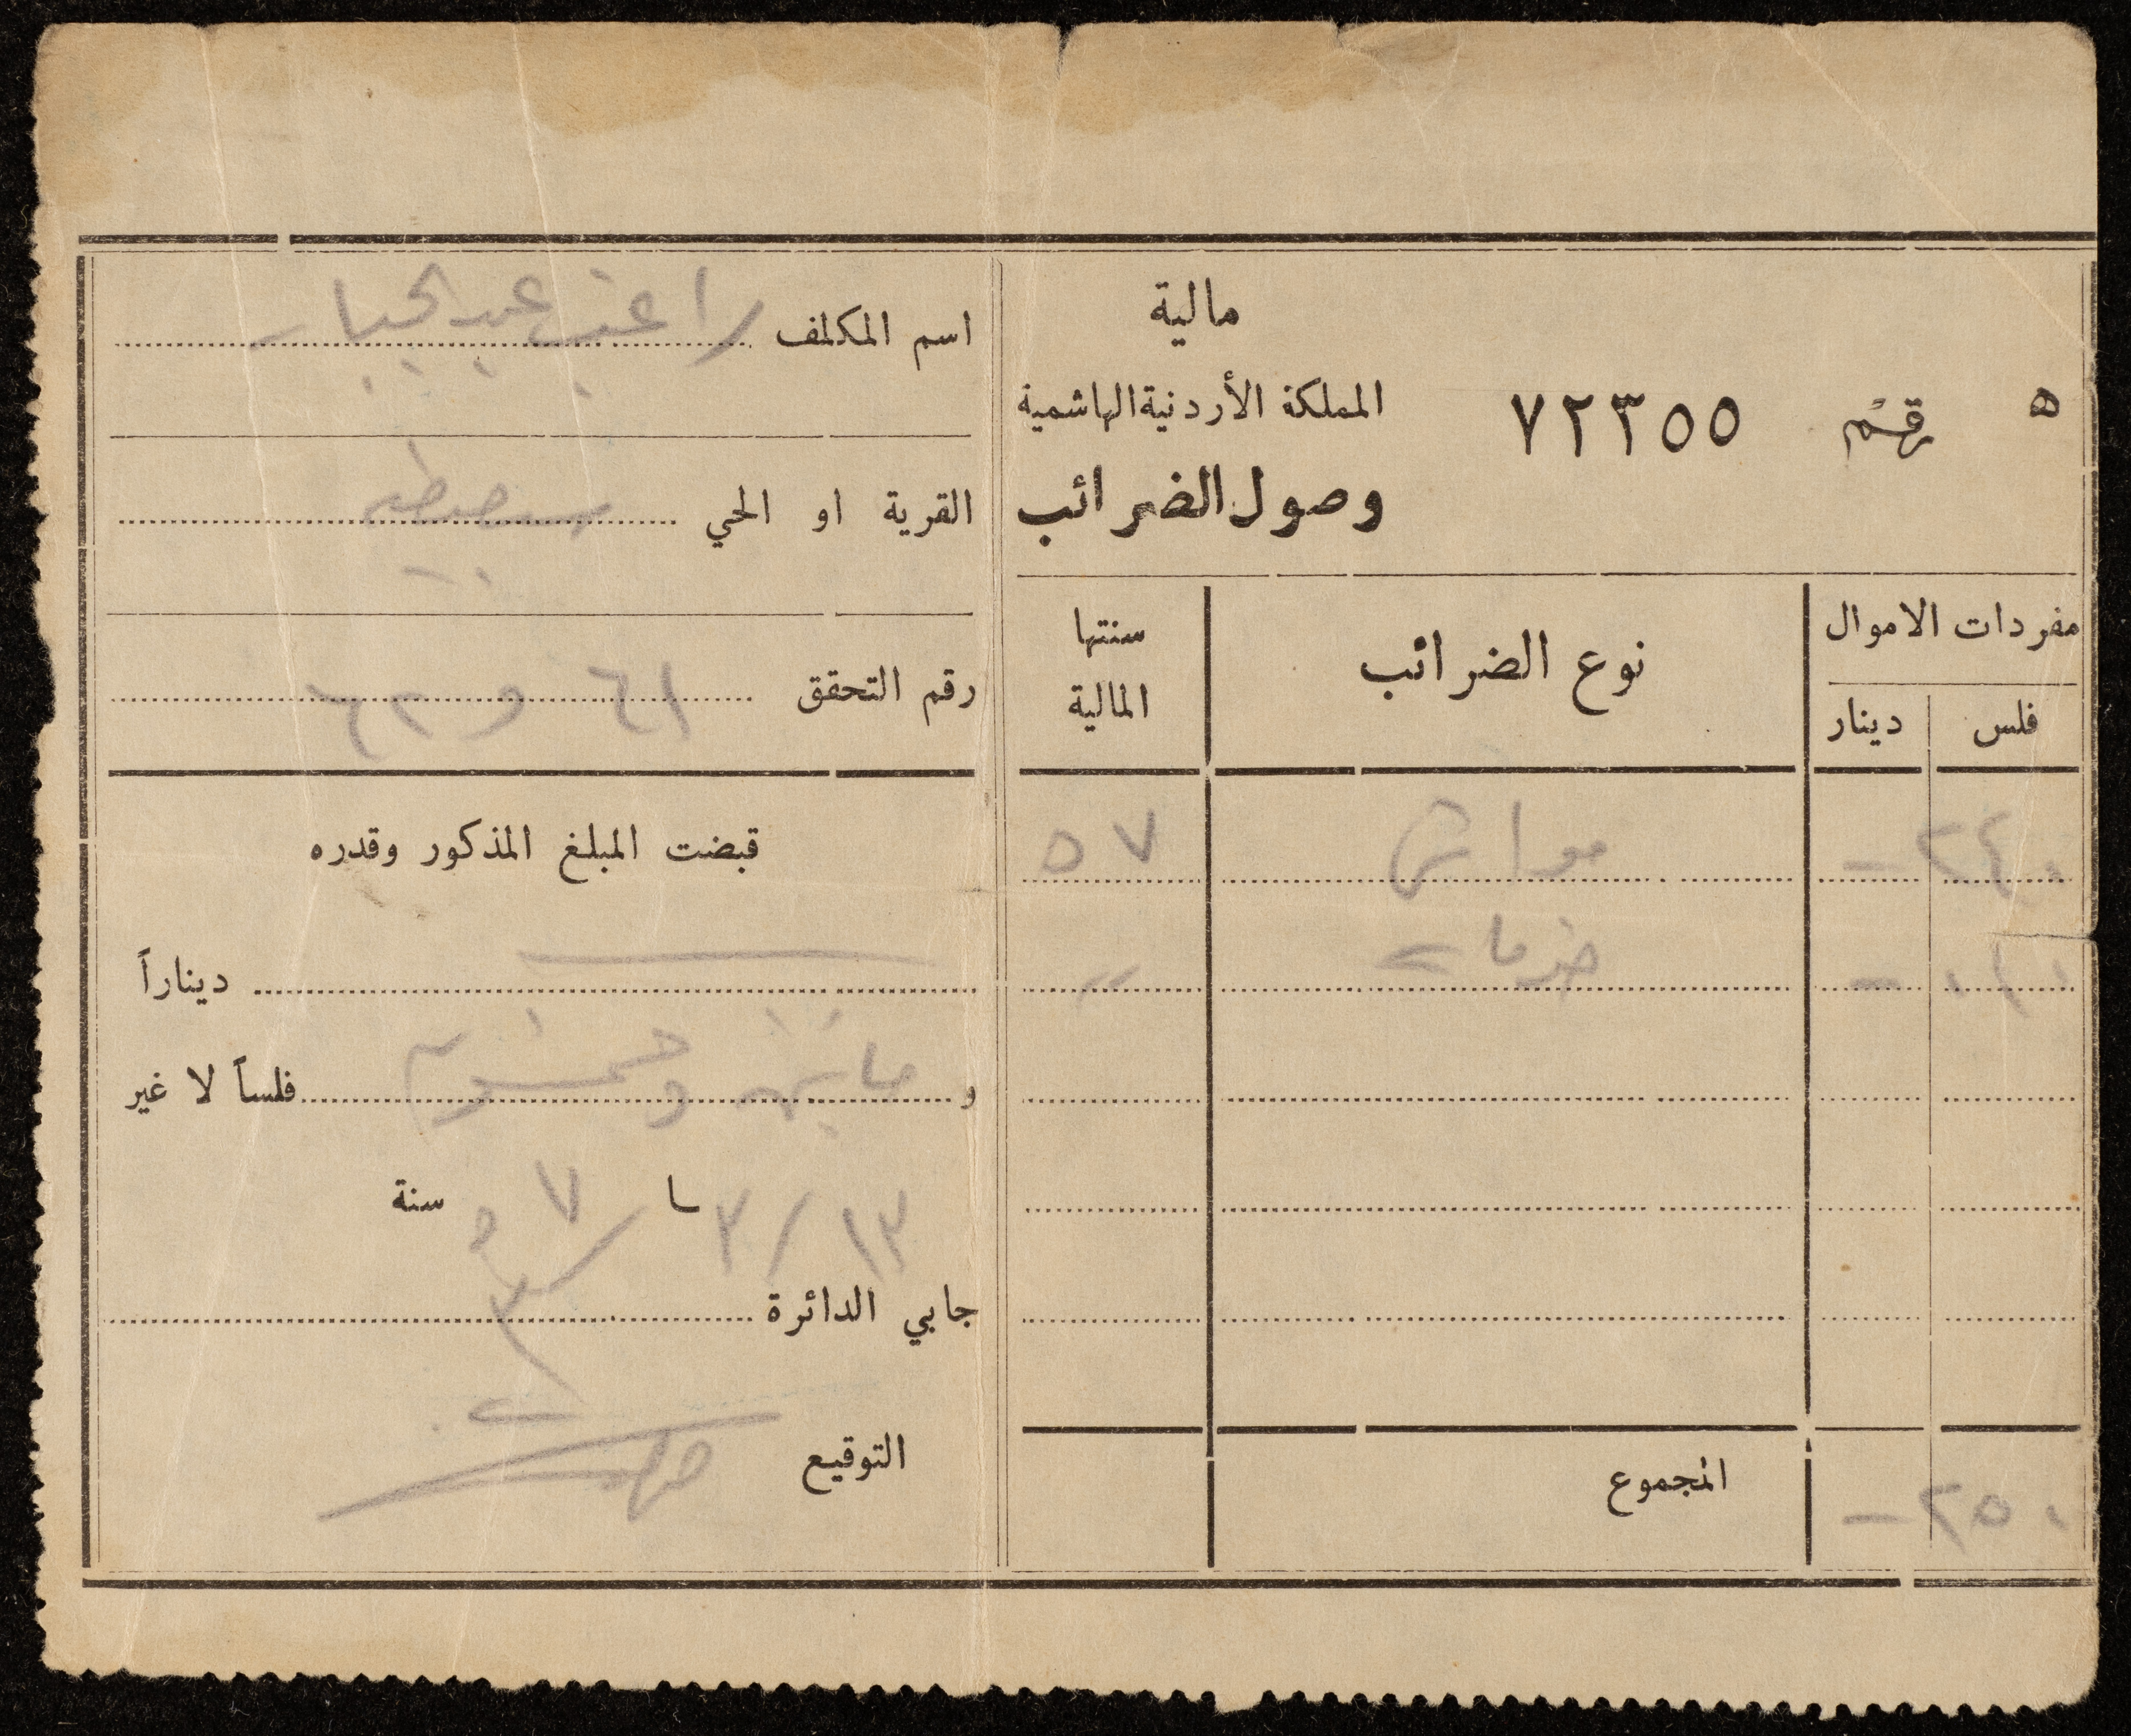 ه رقم ٧٢٣٥٥
مالية
المملكة الأردنية الهاشمية
وصول الضرائب
مفردات الاموال
فلس دينار
نوع الضرائب
سنتها
المالية
٢٤٠ – مواشي ٥٧
٠١٠ – خدمات 〃
المجموع
٢٥٠ –
اسم المكلف راغب عبد الجبار
القرية او الحي سبسطيه
رقم التحقق ٦١
قبضت المبلغ المذكور وقدره
ديناراً
و مايتين وخمسون فلساً لا غير
١٣ / ٣ / ٥٧ سنة
جابي الدائرة
التوقيع